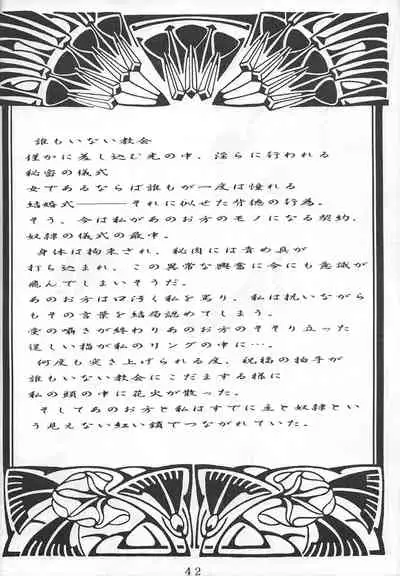 誰もいない教会
僅かに差し込む光の中、淫らに行われる
秘密の儀式
女であるならば誰もが一度は憧れる
結婚式――それに似せた背徳の行為。
そう、今は私があのお方のモノになる契約、
奴隷の儀式の最中。
身体は拘束され、秘肉には責め具が
打ち込まれ、この異常な興奮に今にも意識が
飛んでしまいそうだ。
あのお方は口汚く私を罵り、私は抗いながら
もその言葉を結局認めてしまう。
愛の囁きが終わりあのお方のそそり立った
逞しい指が私のリングの中に…。
何度も突き上げられる度、祝福の拍手が
誰もいない教会にこだまする様に
私の頭の中に花火が散った。
そしてあのお方と私はすでに主と奴隷とい
う見えない紅い鎖でつながれていた。
42